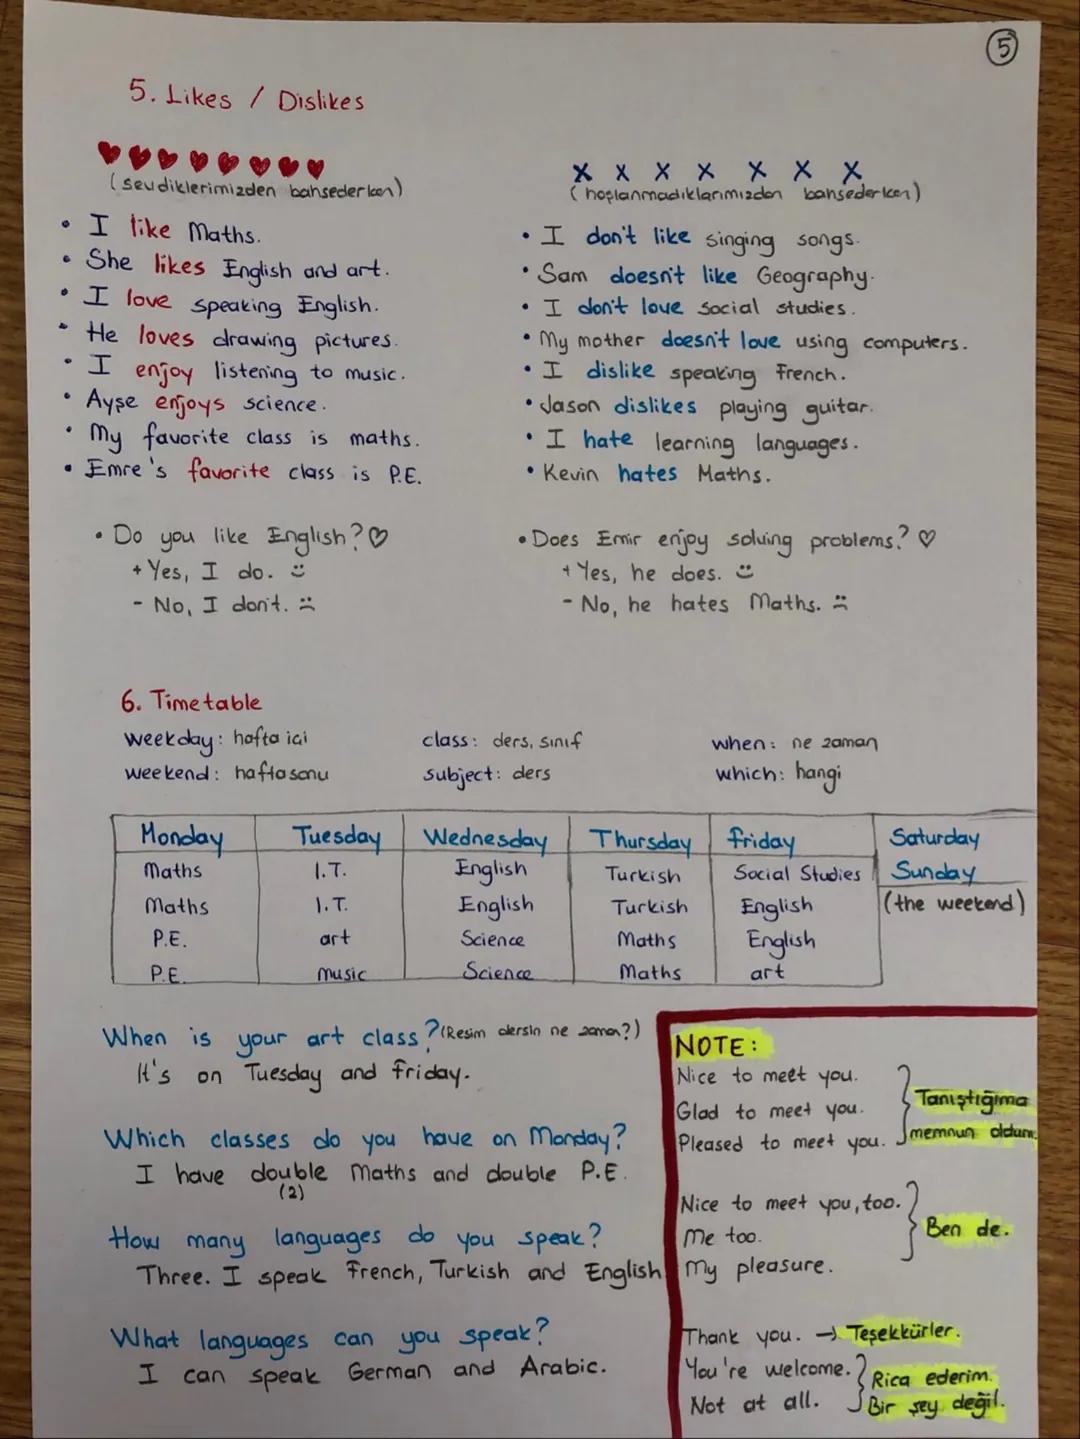 5
5. Likes / Dislikes
(sevdiklerimizden bahsederken)
• I like Maths.
• She likes English and art.
• I love speaking English.
• He loves drawing pictures.
• I enjoy listening to music.
• Ayşe enjoys science.
• My favorite class is maths.
• Emre's favorite class is P.E.
• Do you like English? ♡
+ Yes, I do.
- No, I don't.
x x x x x x x
(hoşlanmadıklarımızdan bahsederken)
• I don't like singing songs.
• Sam doesn't like Geography.
• I don't love social studies.
• My mother doesn't love using computers.
• I dislike speaking French.
• Jason dislikes playing guitar.
• I hate learning languages.
• Kevin hates Maths.
• Does Emir enjoy solving problems? ♡
+ Yes, he does.
- No, he hates Maths.
6. Timetable
weekday: hafta içi class: ders, sınıf when: ne zaman
weekend: haftasonu subject: ders which: hangi
Monday Tuesday Wednesday Thursday Friday Saturday
Maths I.T. English Turkish Social Studies Sunday
Maths I.T. English Turkish English (the weekend)
P.E. art Science Maths English
P.E. music Science Maths art
When is your art class? (Resim dersin ne zaman?)
It's on Tuesday and Friday.
Which classes do you have on Monday?
I have double Maths and double P.E.
(2)
How many languages do you speak?
Three. I speak French, Turkish and English
What languages can you speak?
I can speak German and Arabic.
NOTE:
Nice to meet you.
Glad to meet you.
Pleased to meet you.
Tanıştığıma
memnun oldum.
Nice to meet you, too.
Me too.
My pleasure.
Ben de.
Thank you. → Teşekkürler.
You're welcome.
Not at all.
Rica ederim.
Bir şey değil.